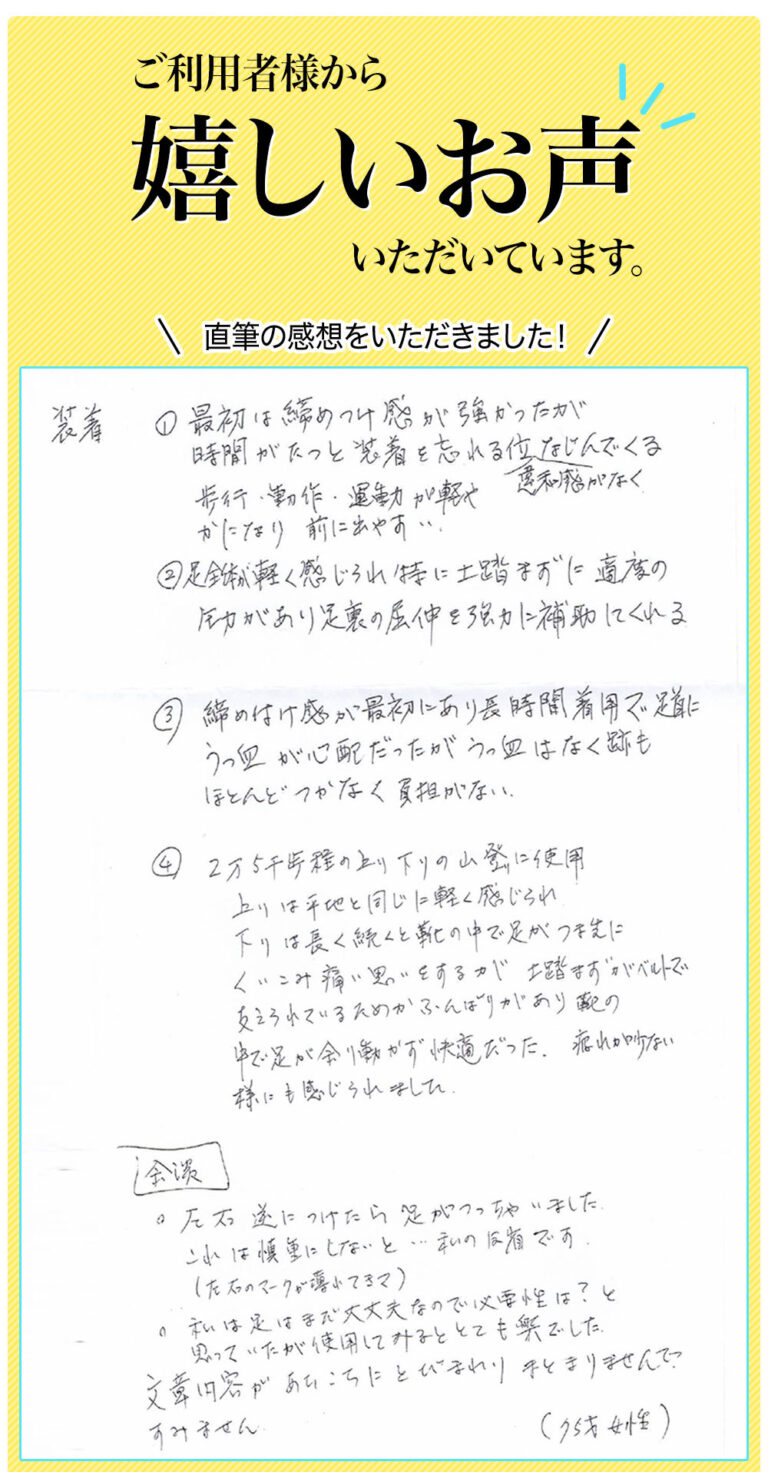 ご利用者様から
嬉しいお声
いただいています。
直筆の感想をいただきました!
装着 ① 最初は締めつけ感が強かったが
時間がたつと装着を忘れる位なじんでくる
違和感がなく
歩行・動作・運動が軽や
かになり 前に出やすい.
②足全体が軽く感じられ特に土踏まずに適度の
圧力があり足裏の屈伸を強力に補助してくれる
③ 締め付け感が最初にあり長時間着用で足首に
うっ血が心配だったがうっ血はなく跡も
ほとんどつかなく負担がない.
④ 2万5千歩程の上り下りの山登りに使用
上りは平地と同じに軽く感じられ
下りは長く続くと靴の中で足がつま先に
くいこみ痛い思いをするが 土踏まずがベルトで
支えられているためかふんばりがあり靴の
中で足が余り動かず快適だった. 疲れが少ない
様にも感じられました.
余談
○ 左右逆につけたら足がつっちゃいました.
これは慎重にしないと…私の反省です.
(左右のマークが薄れてきて)
○ 私は足はまだ大丈夫なので必要性は?と
思っていたが使用してみるととても楽でした.
文章内容があちこちにとびまわりまとまりませんで
すみません.
(75才女性)